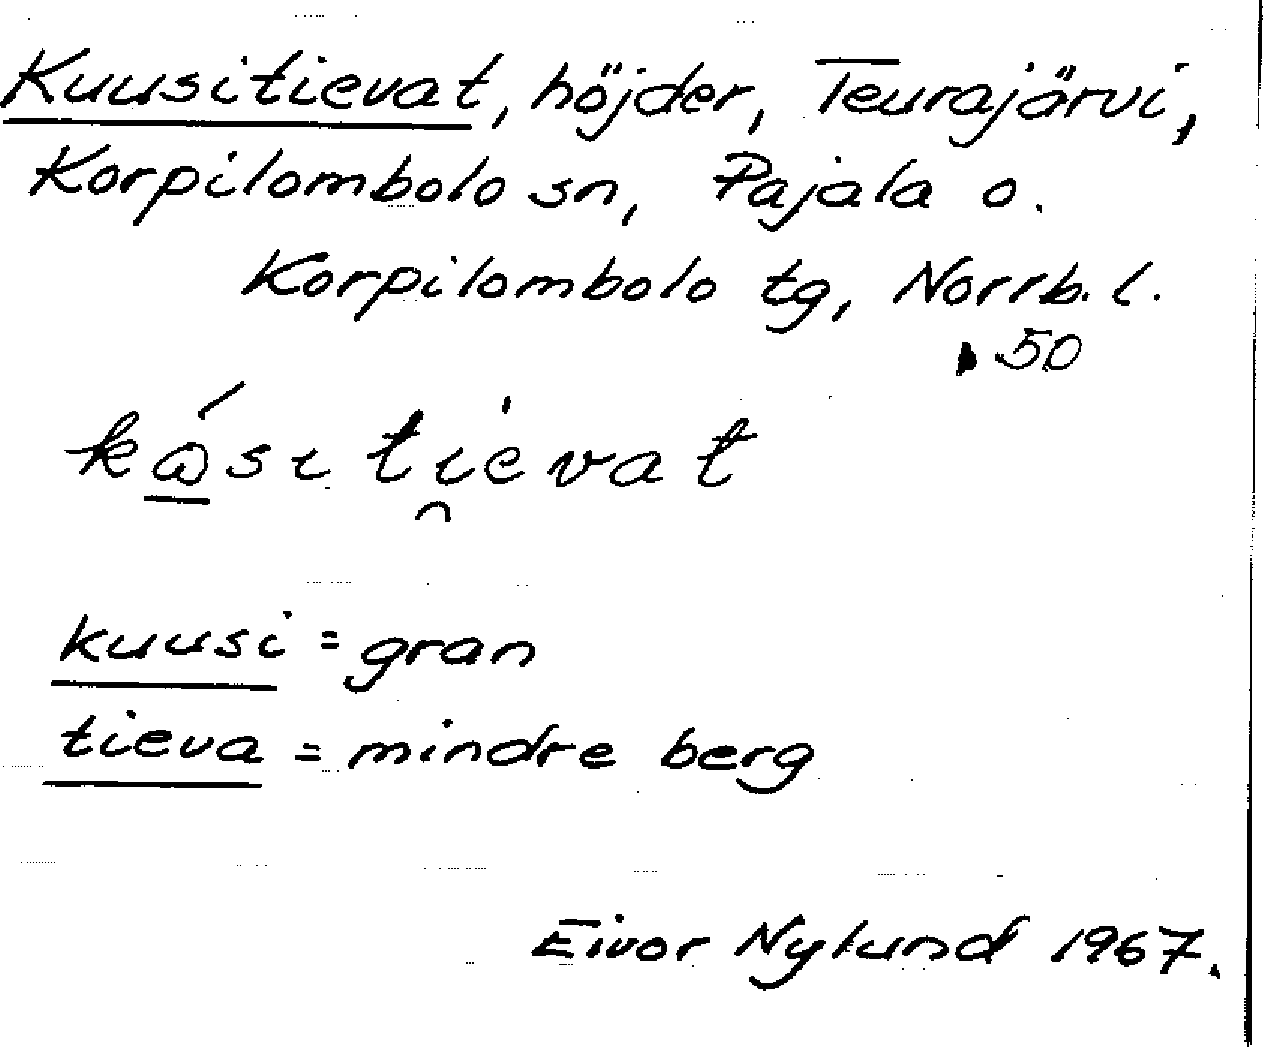 Kuusitievat, höjder, Teurajärvi,
Korpilombolo sn, Pajala o.
Korpilombolo tg, Norrb. l.
50
kuusi = gran
tieva = mindre berg
Eivor Nylund 1967.